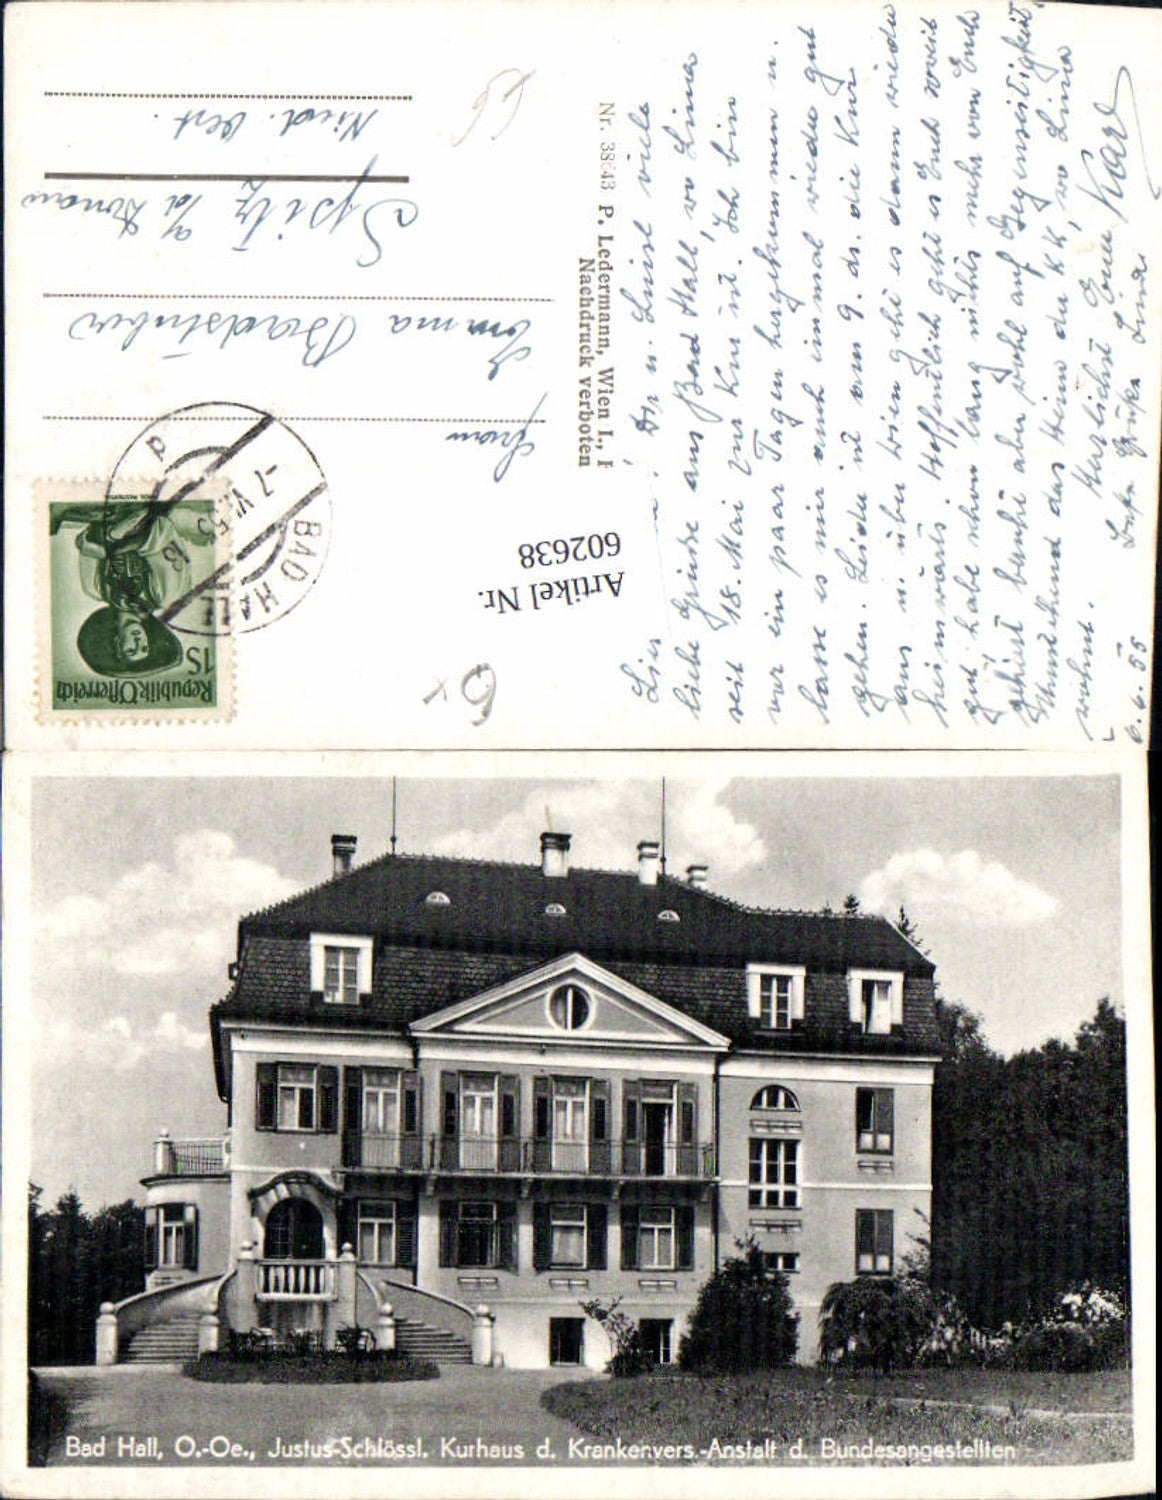 Nr. 38643 P. Ledermann, Wien I.,
Nachdruck verboten
Artikel Nr.
602638
Republik Österreich
1S
BAD HALL
-7.VI.55
13
a
Frau
Emma
Spitz a/d Donau
Nied. Öst.
! Dir u. Luise viele
liebe Grüsse aus Bad Hall, wo Lina
seit 18. Mai zur Kur ist. Ich bin
vor ein paar Tagen hergekommen u.
lasse es mir auch einmal wieder gut
gehen. Leider ist am 9. ds. die Kur
aus u. über Wien geht es dann wieder
heimwärts. Hoffentlich geht es Euch soweit
gut, habe schon lang nichts mehr von Euch
gehört, beruht aber wohl auf Gegenseitigkeit.
Umstehend das Heim der KK, wo Lina
wohnt. Herzlichst Euer Karl
6.6.55 Beste Grüße Lina
Bad Hall, O.-Oe., Justus-Schlössl. Kurhaus d. Krankenvers.-Anstalt d. Bundesangestellten